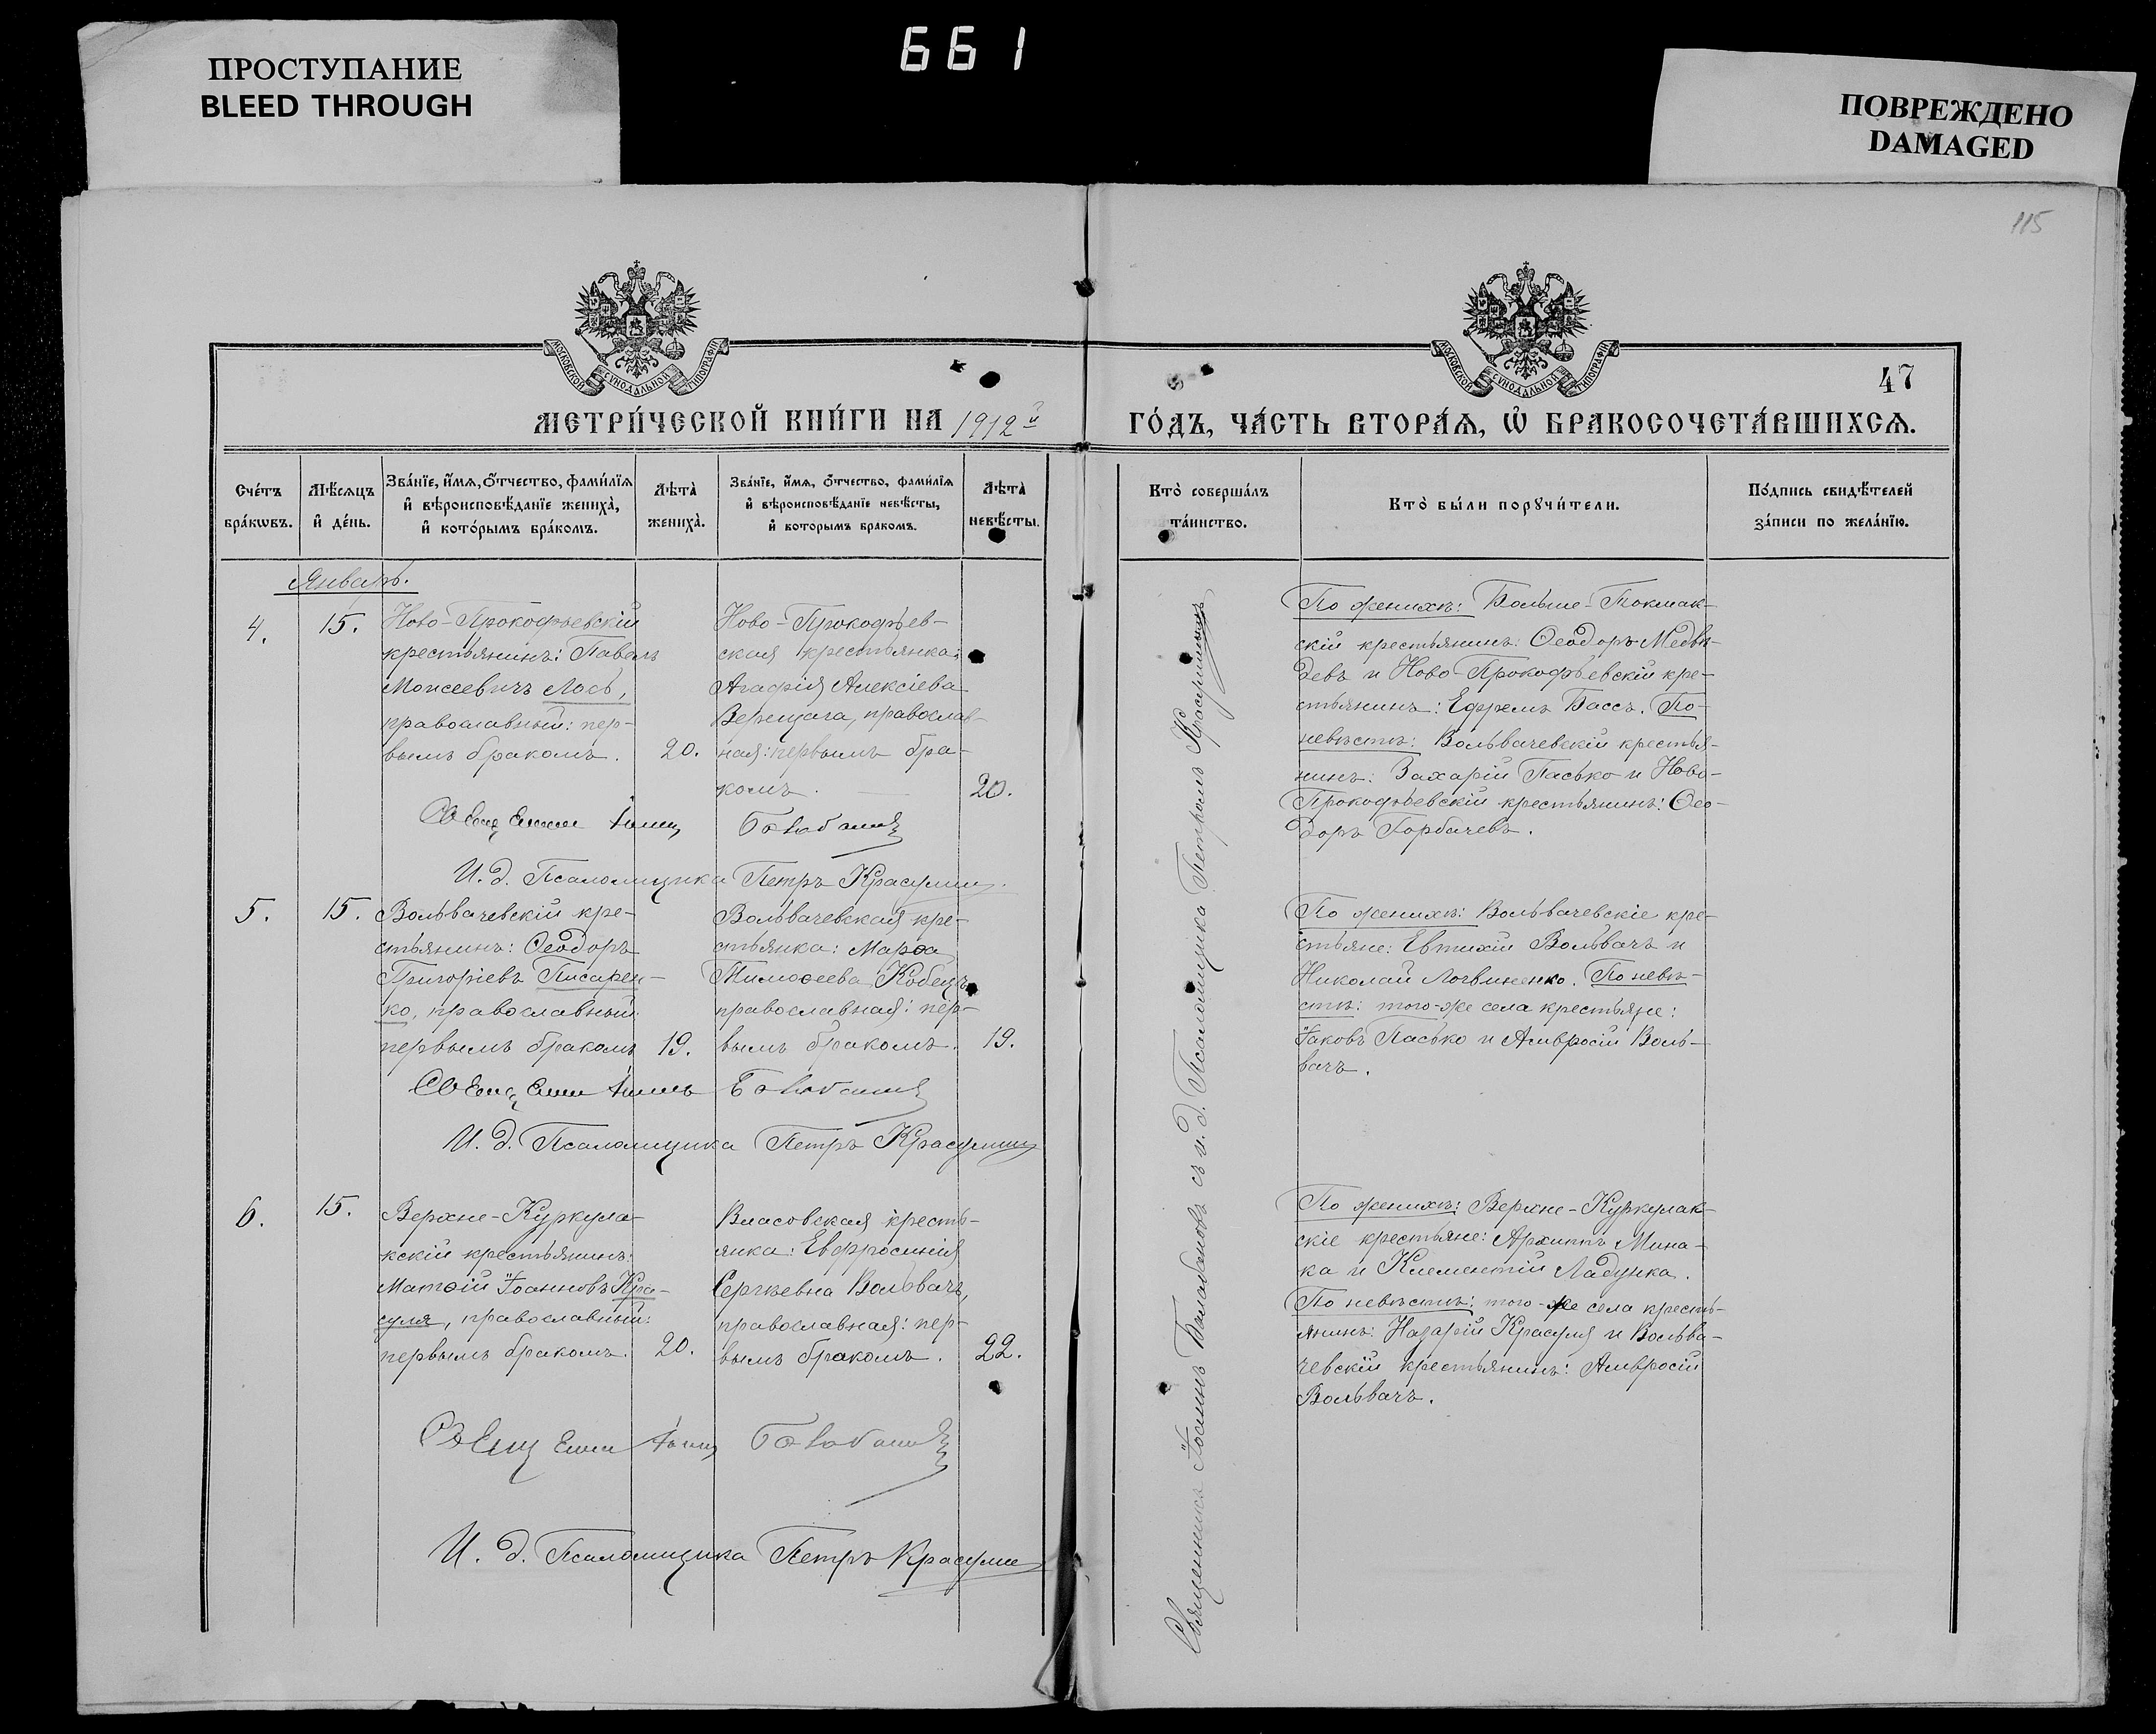 ПРОСТУПАНИЕ
BLEED THROUGH
661
ПОВРЕЖДЕНО
DAMAGED
115
МОСКОВСКОЙ СѴНОДАЛЬНОЙ ТИПОГРАФІИ
МОСКОВСКОЙ СѴНОДАЛЬНОЙ ТИПОГРАФІИ
47
МЕТРИ́ЧЕСКОЙ КНИ́ГИ НА 1912й
ГО́ДЪ, ЧА́СТЬ ВТОРА́Ѧ, Ѡ҆ БРАКОСОЧЕТА́ВШИХСѦ.
Сче́тъ бра́кѡвъ.
Мѣ́сѧцъ и҆ де́нь.
Зва́нїе, и҆́мѧ, ѻ҆́тчество, фами́лїѧ
и҆ вѣроисповѣ́данїе жениха̀,
и҆ кото́рымъ бра́комъ.
Лѣта̀ жениха̀.
Зва́нїе, и҆́мѧ, ѻ҆́тчество, фами́лїѧ
и҆ вѣроисповѣ́данїе невѣ́сты,
и҆ которымъ бракомъ.
Лѣта̀ невѣ́сты.
Кто̀ соверша́лъ та́инство.
Кто̀ бы́ли порꙋчи́тели.
По́дпись свидѣ́телей за́писи по жела́нїю.
Январь.
4.
15.
Ново-Прокофьевскій
крестьянинъ: Павелъ
Моисеевичъ Лось,
православный: пер-
вымъ бракомъ.
20.
Ново-Прокофьев-
ская крестьянка:
Агафія Алексіева
Верещага, православ-
ная: первымъ бра-
комъ.
20.
По женихѣ: Больше-Токмак-
скій крестьянинъ: Ѳеодоръ Медвѣ-
девъ и Ново-Прокофьевскій кре-
стьянинъ: Ефремъ Бассъ. По
невѣстѣ: Вольвачевскій крестья-
нинъ: Захарій Пасько и Ново-
Прокофьевскій крестьянинъ: Ѳео-
доръ Горбачевъ.
И. д. Псаломщика Петръ Красулин
5.
15.
Вольвачевскій кре-
стьянинъ: Ѳеодоръ
Григоріевъ Писарен-
ко, православный:
первымъ бракомъ
19.
Вольвачевская кре-
стьянка: Марѳа
Тимоѳеева Кобецъ,
православная: пер-
вымъ бракомъ.
19.
По женихѣ: Вольвачевскіе кре-
стьяне: Евтихій Вольвачъ и
Николай Логвиненко. По невѣ-
стѣ: того-же села крестьяне:
Іаковъ Пасько и Амвросій Воль-
вачъ.
И. д. Псаломщика Петръ Красулин
6.
15.
Верхне-Куркула-
кскій крестьянинъ:
Матѳій Іоанновъ Кра-
суля, православный:
первымъ бракомъ.
20.
Власовская кресть-
янка: Евфросинія
Сергѣевна Вольвачъ,
православная: пер-
вымъ бракомъ.
22.
По женихѣ: Верхне-Куркулак-
скіе крестьяне: Архиппъ Мина-
ка и Климентій Ладунка.
По невѣстѣ: того-же села кресть-
янинъ: Назарій Красуля и Вольва-
чевскій крестьянинъ: Амвросій
Вольвачъ.
И. д. Псаломщика Петръ Красулин
Священникъ Іоаннъ Балабановъ съ и. д. Псаломщика Петромъ Красулинымъ